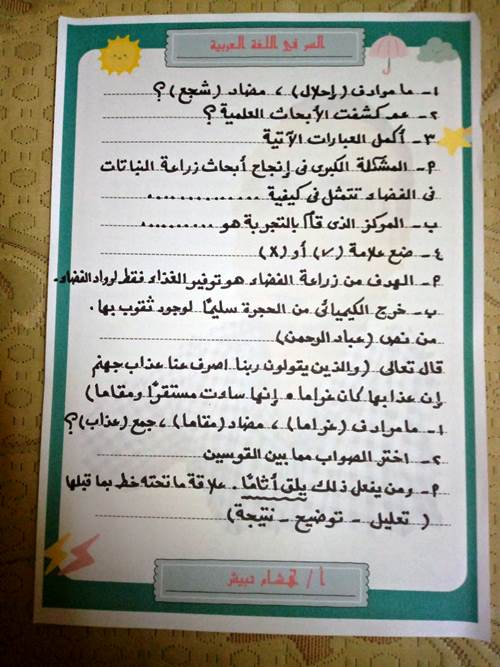 السر في اللغة العربية
١- ما مرادف (إحلال) ، مضاد (شجع) ؟
٢- عم كشفت الأبحاث العلمية ؟
٣- أكمل العبارات الآتية
٩- المشكلة الكبرى فى إنجاح أبحاث زراعة النباتات
فى الفضاء تتمثل فى كيفية ..............
ب- المركز الذى قام بالتجربة هو ..........
٤- ضع علامة (√) أو (X)
٩- الهدف من زراعة الفضاء هو توفير الغذاء فقط لرواد الفضاء.
ب- خرج الكيميائى من الحجرة سليمًا لوجود ثقوب بها.
من نص (عباد الرحمن)
قال تعالى (والذين يقولون ربنا اصرف عنا عذاب جهنم
إن عذابها كان غراما ه إنها ساءت مستقرًا ومقاما)
١- ما مرادف (غراما) ، مضاد (مقاما) ، جمع (عذاب) ؟
٢- اختر الصواب مما بين القوسين
٩- ومن يفعل ذلك يلق أثامًا. علاقة ما تحته خط بما قبلها
( تعليل - توضيح - نتيجة)
أ / هشام حبيش